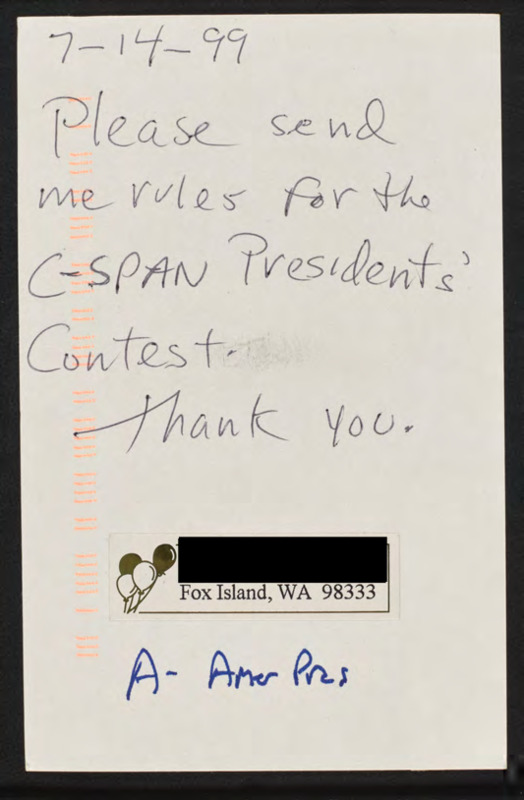 7-14-99
Please send
me rules for the
C-SPAN Presidents'
Contest.
Thank you.
Fox Island, WA 98333
A- Amer Pres